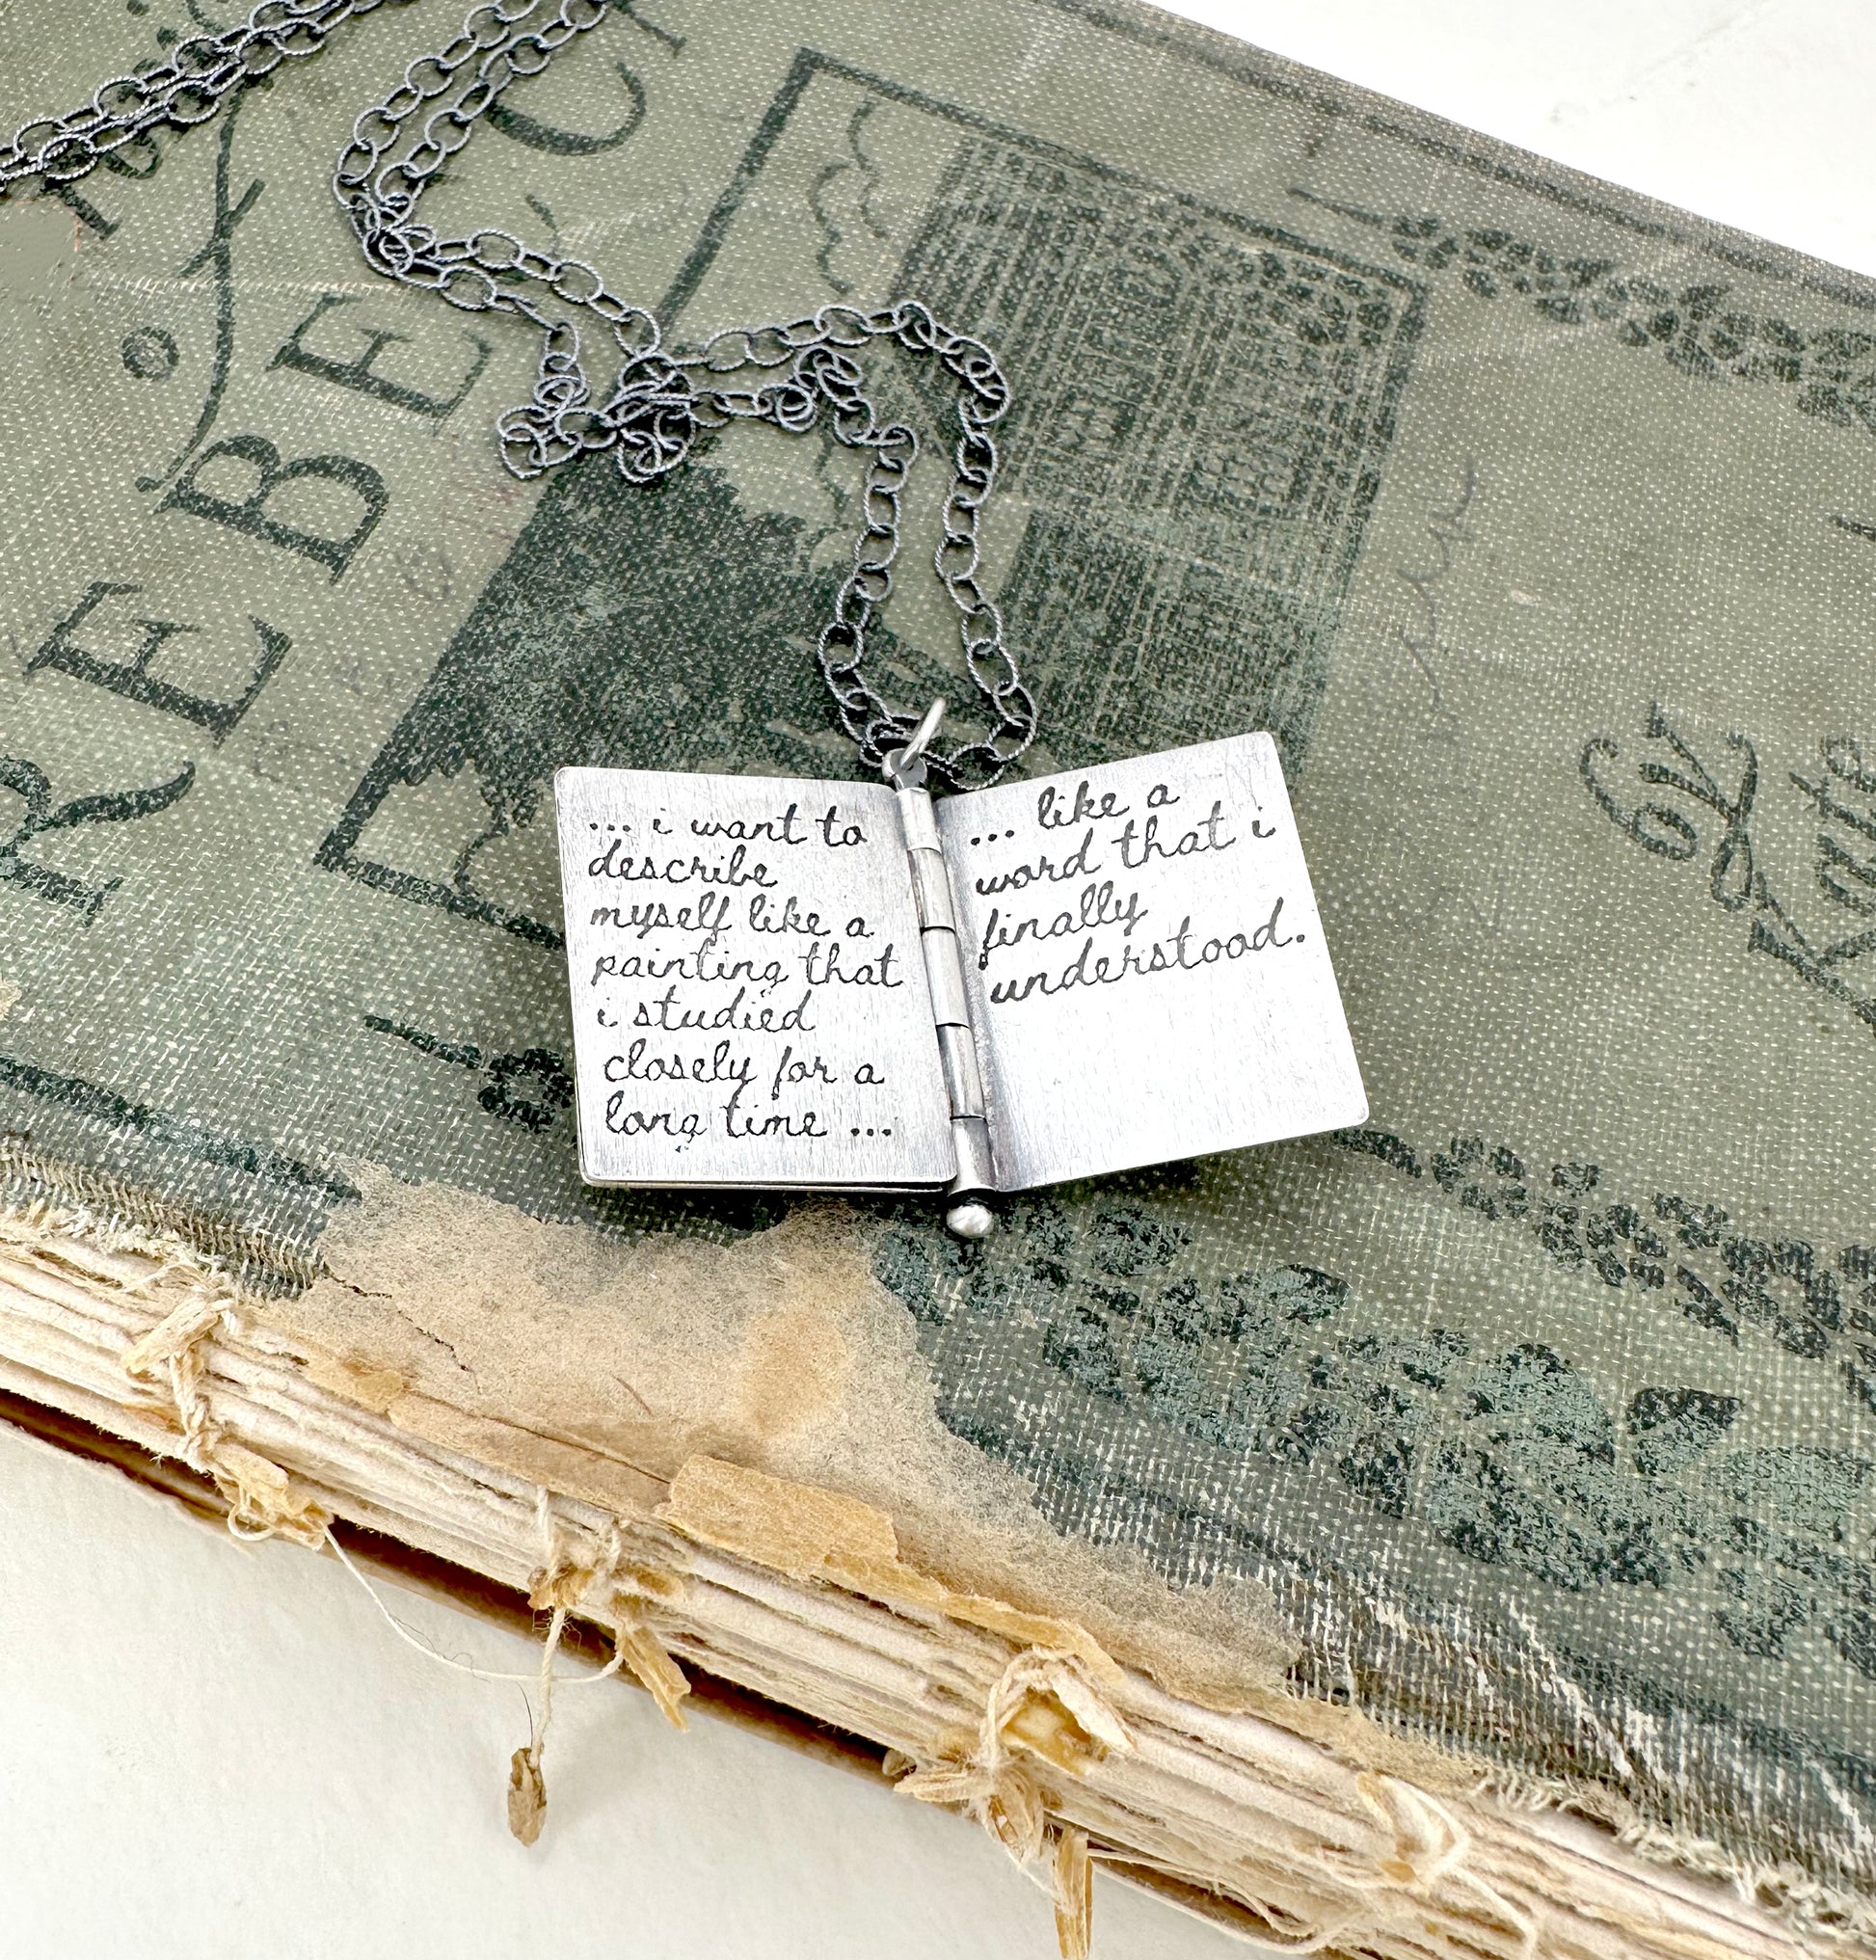 REBECC
Kate
... i want to
describe
myself like a
painting that
i studied
closely for a
long time ...
... like a
word that i
finally
understood.